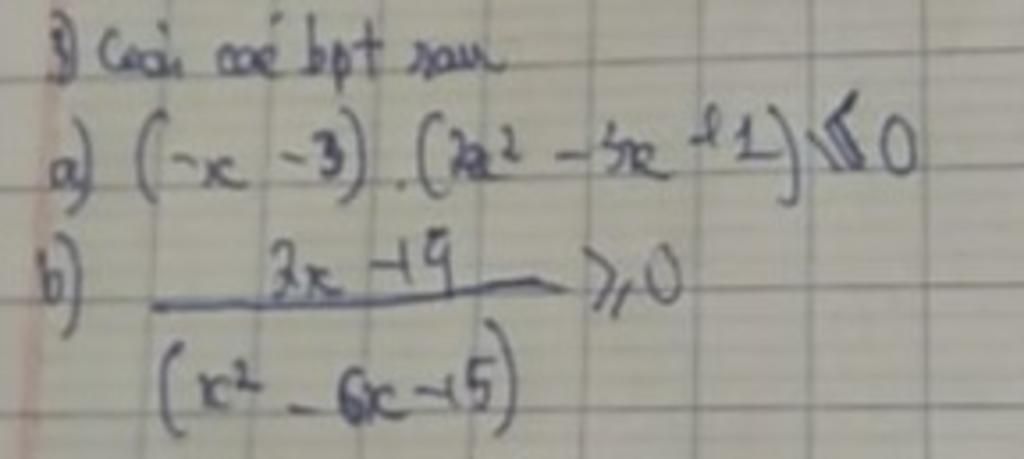 3) Giải các bpt sau
a) (-x - 3).(2x² - 3x + 1) ≤ 0
b) (2x + 9)/(x² - 6x + 5) ≥ 0